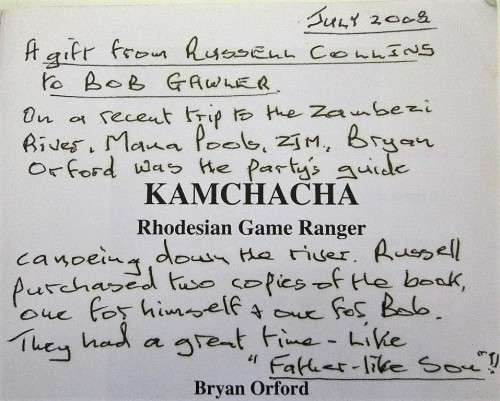 JULY 2008
A gift from RUSSELL COLLINS
to BOB GAWLER.
On a recent trip to the Zambezi
River, Mana Pools, ZIM., Bryan
Orford was the party's guide
KAMCHACHA
Rhodesian Game Ranger
canoeing down the river. Russell
purchased two copies of the book,
one for himself & one for Bob.
They had a great time - Like
"Father-like Son"!!
Bryan Orford